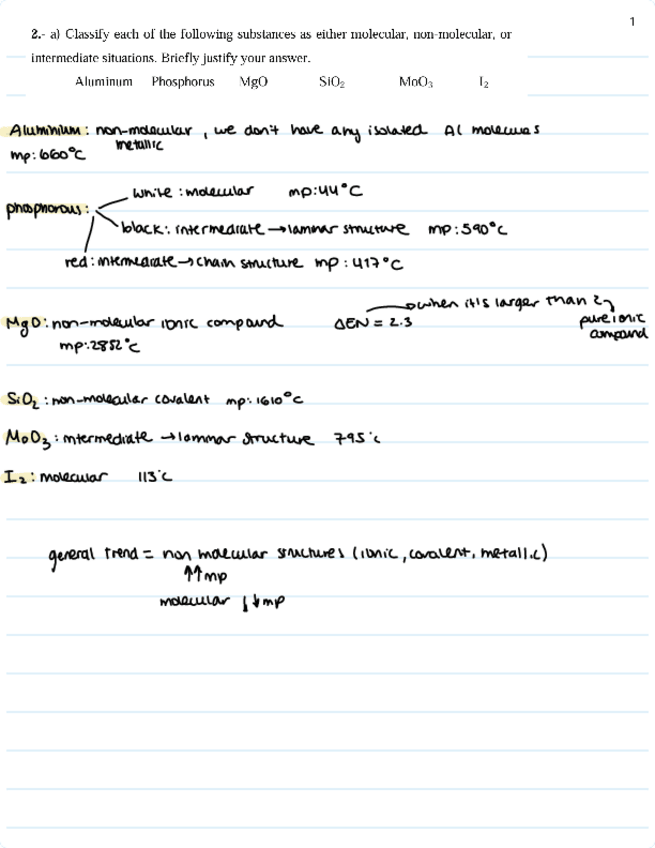 1
2.- a) Classify each of the following substances as either molecular, non-molecular, or
intermediate situations. Briefly justify your answer.
Aluminum Phosphorus MgO SiO₂ MoO₃ I₂
Aluminium: non-molecular, we don't have any isolated Al molecules
metallic
mp: 660°C
white: molecular mp: 44°C
phosphorous:
black: intermediate → laminar structure mp: 590°C
red: intermediate → chain structure mp: 417°C
when it's larger than 2
MgO: non-molecular ionic compound ΔEN = 2.3 pure ionic
compound
mp: 2852°C
SiO₂: non-molecular covalent mp: 1610°C
MoO₃: intermediate → laminar structure 795°C
I₂: molecular 113°C
general trend = non molecular structures (ionic, covalent, metallic)
↑↑mp
molecular ↓↓mp